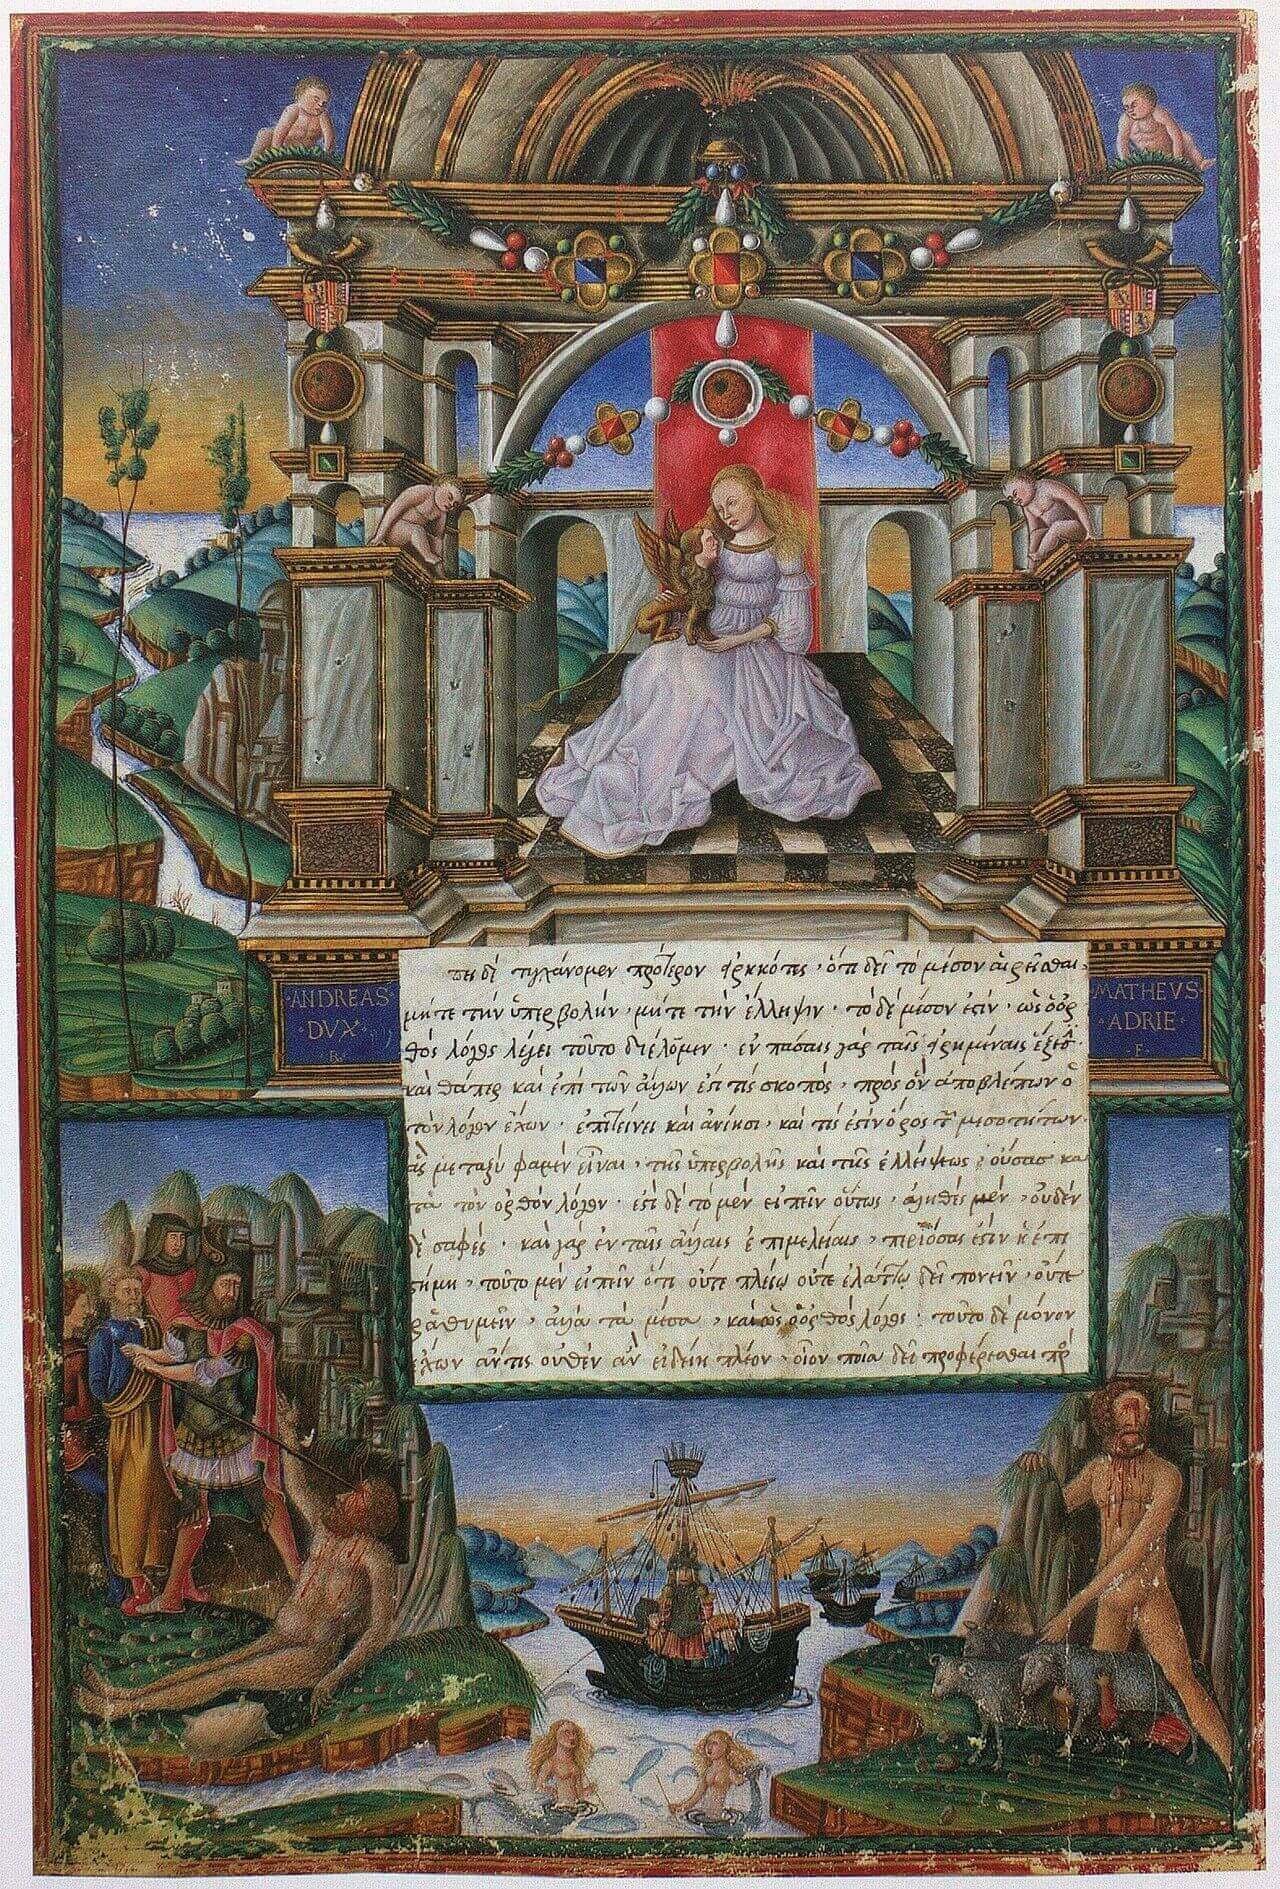 πει δὲ τυγχάνομεν πρότερον εἰρηκότες · ὅτι δεῖ τὸ μέσον αἱρεῖσθαι ·
·ANDREAS·
·DVX·
μήτε τὴν ὑπερβολὴν · μήτε τὴν ἔλλειψιν · τὸ δὲ μέσον ἐστὶν · ὡς ὁ ὀρ
θὸς λόγος λέγει τοῦτο διέλωμεν · ἐν πάσαις γὰρ ταῖς εἰρημέναις ἕξεσι
καθάπερ καὶ ἐπὶ τῶν ἄλλων ἐστί τις σκοπὸς · πρὸς ὃν ἀποβλέπων ὁ
τὸν λόγον ἔχων · ἐπιτείνει καὶ ἀνίησι · καί τις ἐστὶν ὅρος τῶν μεσοτήτων ·
ἃς μεταξύ φαμεν εἶναι · τῆς ὑπερβολῆς καὶ τῆς ἐλλείψεως · οὔσας κα
τὰ τὸν ὀρθὸν λόγον · ἐστὶ δὲ τὸ μὲν εἰπεῖν οὕτως · ἀληθὲς μὲν · οὐδὲν
δὲ σαφές · καὶ γὰρ ἐν ταῖς ἄλλαις ἐπιμελείαις · περὶ ὅσας ἐστὶν ἐπι
στήμη · τοῦτο μὲν εἰπεῖν ὅτι οὔτε πλείω οὔτε ἐλάττω δεῖ πονεῖν · οὔτε
ῥᾳθυμεῖν · ἀλλὰ τὰ μέσα · καὶ ὡς ὁ ὀρθὸς λόγος · τοῦτο δὲ μόνον
ἔχων ἄν τις οὐθὲν ἂν εἰδείη πλέον · οἷον ποῖα δεῖ προσφέρεσθαι πρὸς
MATHEVS·
·ADRIE·
·F·